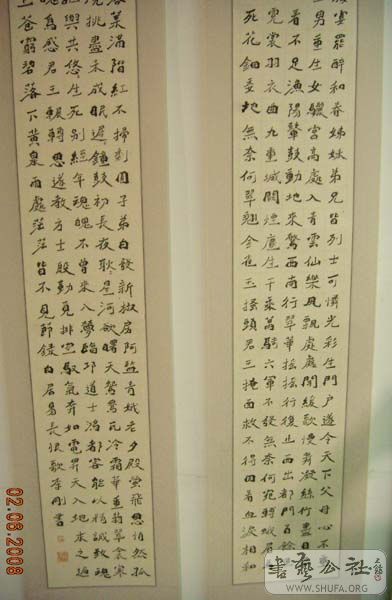 宴罷醉和春姊妹弟兄皆列士可憐光彩生門戶遂令天下父母心不
男重生女驪宮高處入青雲仙樂風飄處處聞緩歌慢舞凝絲竹盡日
看不足漁陽鼙鼓動地來驚西南行翠華搖搖行復止西出都門百餘
霓裳羽衣曲九重城闕煙塵生千乘萬騎六軍不發無奈何宛轉蛾眉
死花鈿委地無奈何翠翹金雀玉搔頭君王掩面救不得回看血淚相和
落葉滿階紅不掃梨園子弟白發新椒房阿監青娥老夕殿螢飛思悄然孤
挑盡未成眠遲鐘鼓初長夜耿星河欲曙天鴛鴦瓦冷霜華重翡翠衾寒
與共悠生死別經年魂魄不曾來入夢臨邛道士鴻都客能以精誠致魂
魄為感君王輾轉思遂教方士殷勤覓排空馭氣奔如電昇天入地求之遍
上窮碧落下黃泉兩處茫茫皆不見節錄白居易長恨歌李剛書
02.06.2008
書藝公社
WWW.SHUFA.ORG